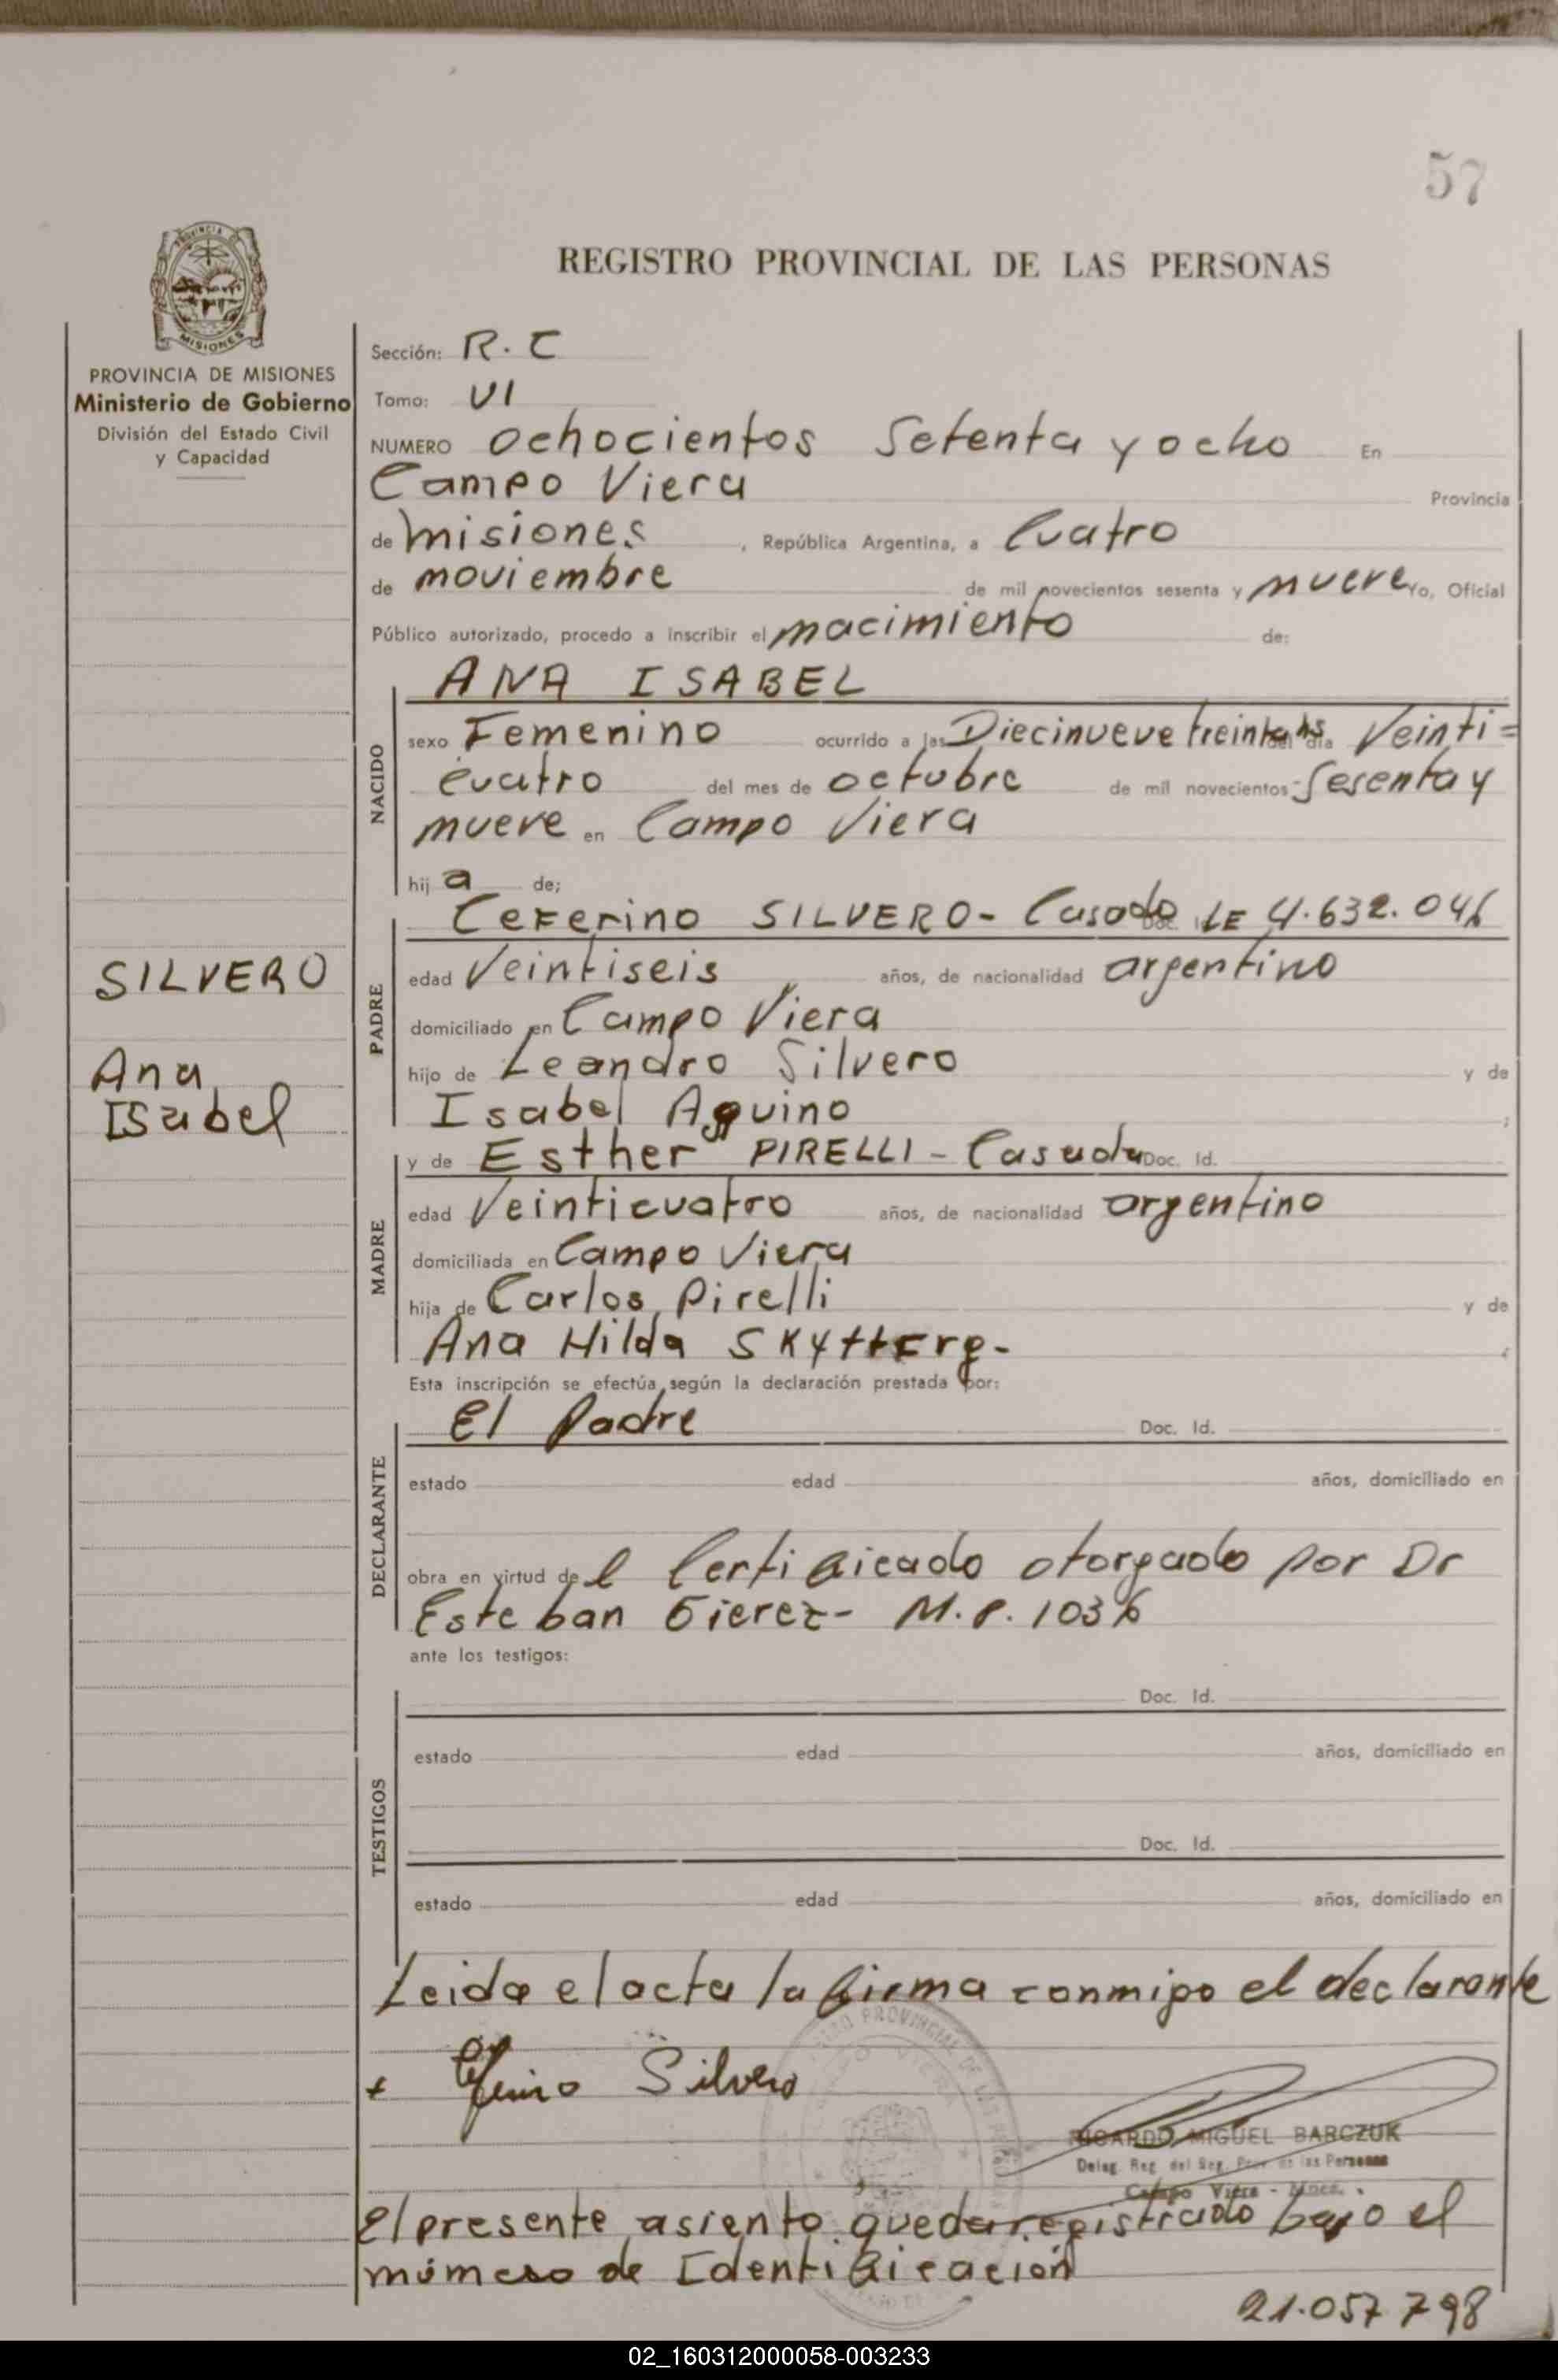 57
REGISTRO PROVINCIAL DE LAS PERSONAS
PROVINCIA DE MISIONES
Ministerio de Gobierno
División del Estado Civil
y Capacidad
Sección: R. C
Tomo: VI
NUMERO ochocientos Setenta y ocho En
Campo Viera Provincia
de misiones, República Argentina, a Cuatro
de noviembre de mil novecientos sesenta y nueve Yo, Oficial
Público autorizado, procedo a inscribir el nacimiento de:
NACIDO
ANA ISABEL
sexo Femenino ocurrido a las Diecinueve treinta hs. del día Veinti=
cuatro del mes de octubre de mil novecientos Sesenta y
nueve en Campo Viera
hij a de;
SILVERO
Ana
Isabel
PADRE
Ceferino SILVERO- Casado Doc. LE 4.632.046
edad Veintiseis años, de nacionalidad argentino
domiciliado en Campo Viera
hijo de Leandro Silvero y de
Isabel Aquino ;
MADRE
y de Esther PIRELLI - Casada Doc. Id.
edad Veinticuatro años, de nacionalidad argentino
domiciliada en Campo Viera
hija de Carlos Pirelli y de
Ana Hilda -
Esta inscripción se efectúa según la declaración prestada por:
DECLARANTE
El Padre Doc. Id.
estado edad años, domiciliado en
obra en virtud de l Certificado otorgado por Dr
Esteban - M.P. 1036
ante los testigos:
TESTIGOS
Doc. Id.
estado edad años, domiciliado en
Doc. Id.
estado edad años, domiciliado en
Leida el acta la firma conmigo el declarante
+ Silvero
RICARDO MIGUEL BARCZUK
Deleg. Reg. del Reg. Prov. de las Personas
Campo Viera - Mnes.
El presente asiento queda registrado bajo el
número de Identificación
21.057.798
02_160312000058-003233